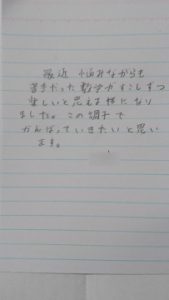 最近 悩みながらも
苦手だった数学がすこしずつ
楽しいと思える様になり
ました。この調子で
がんばっていきたいと思い
ます。